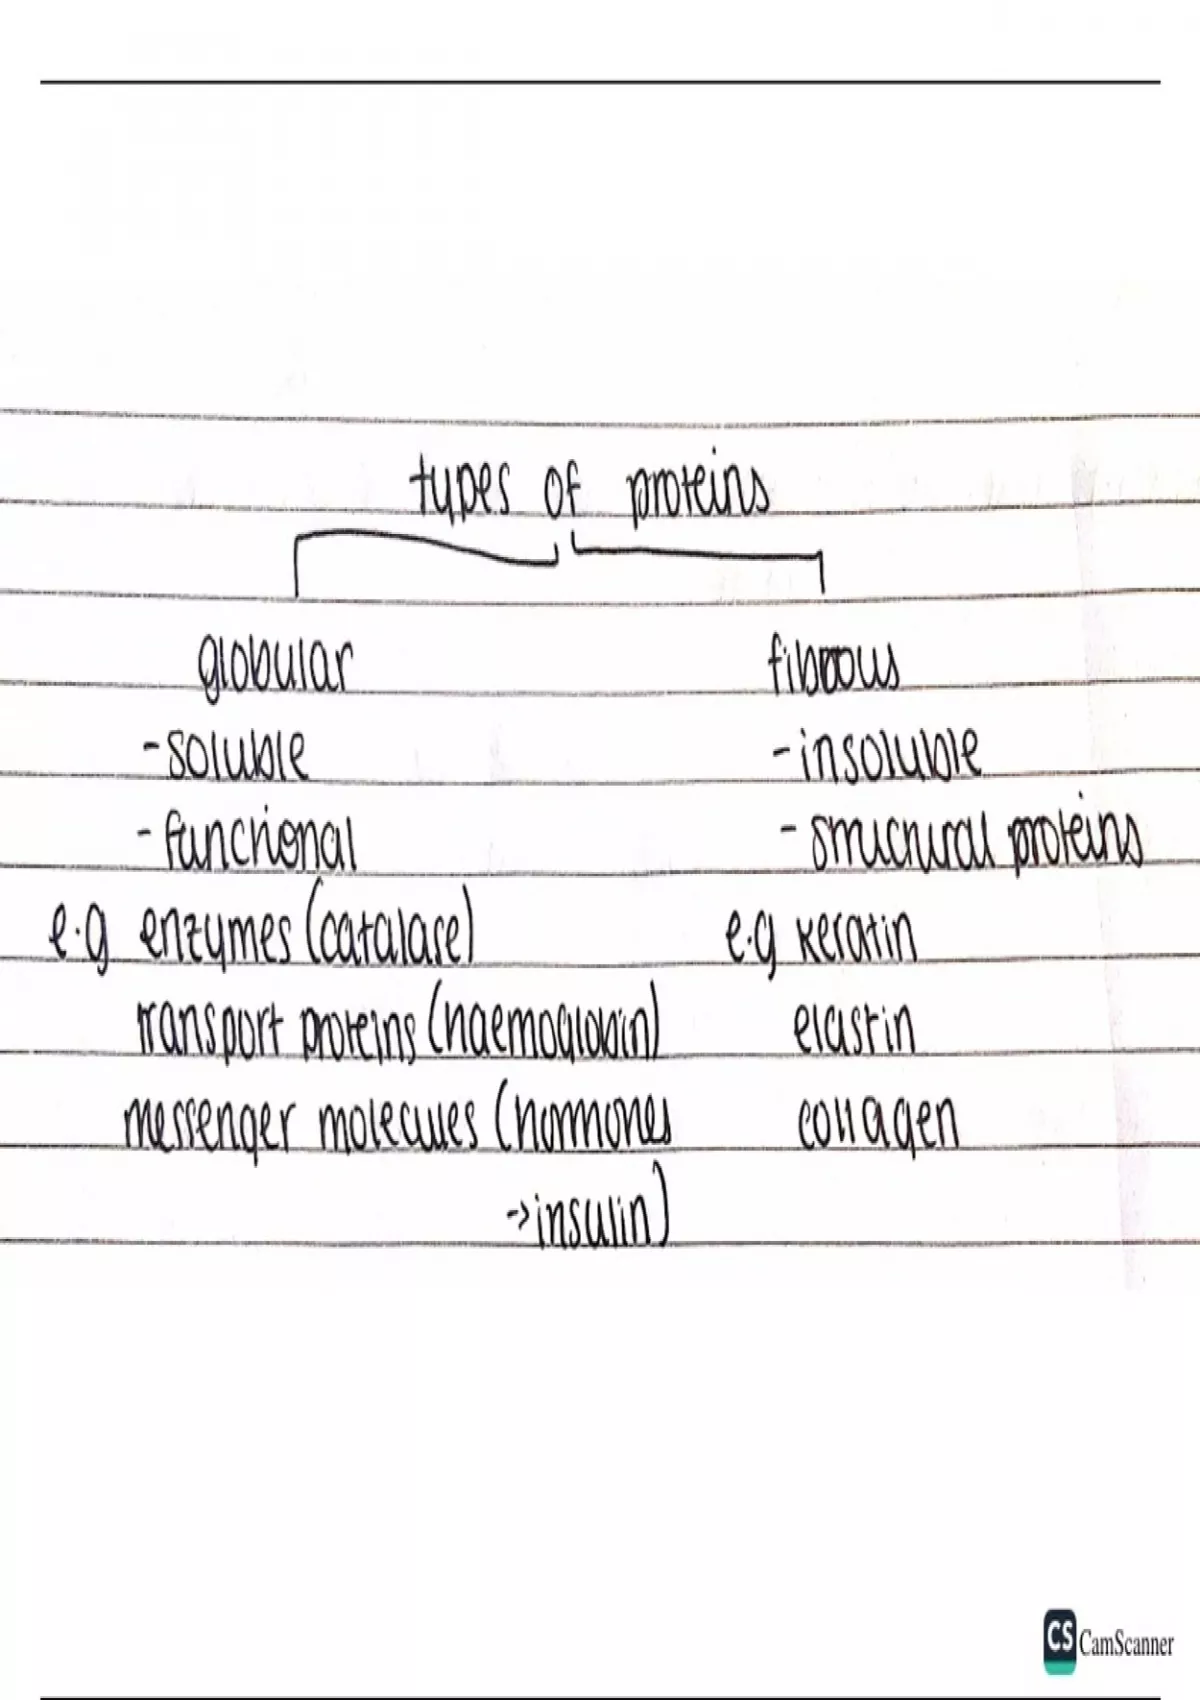 types of proteins
globular
fibrous
-soluble
-insoluble
-functional
- structural proteins
e.g enzymes (catalase)
e.g keratin
transport proteins (haemoglobin)
elastin
messenger molecules (hormones
collagen
->insulin)
CS CamScanner